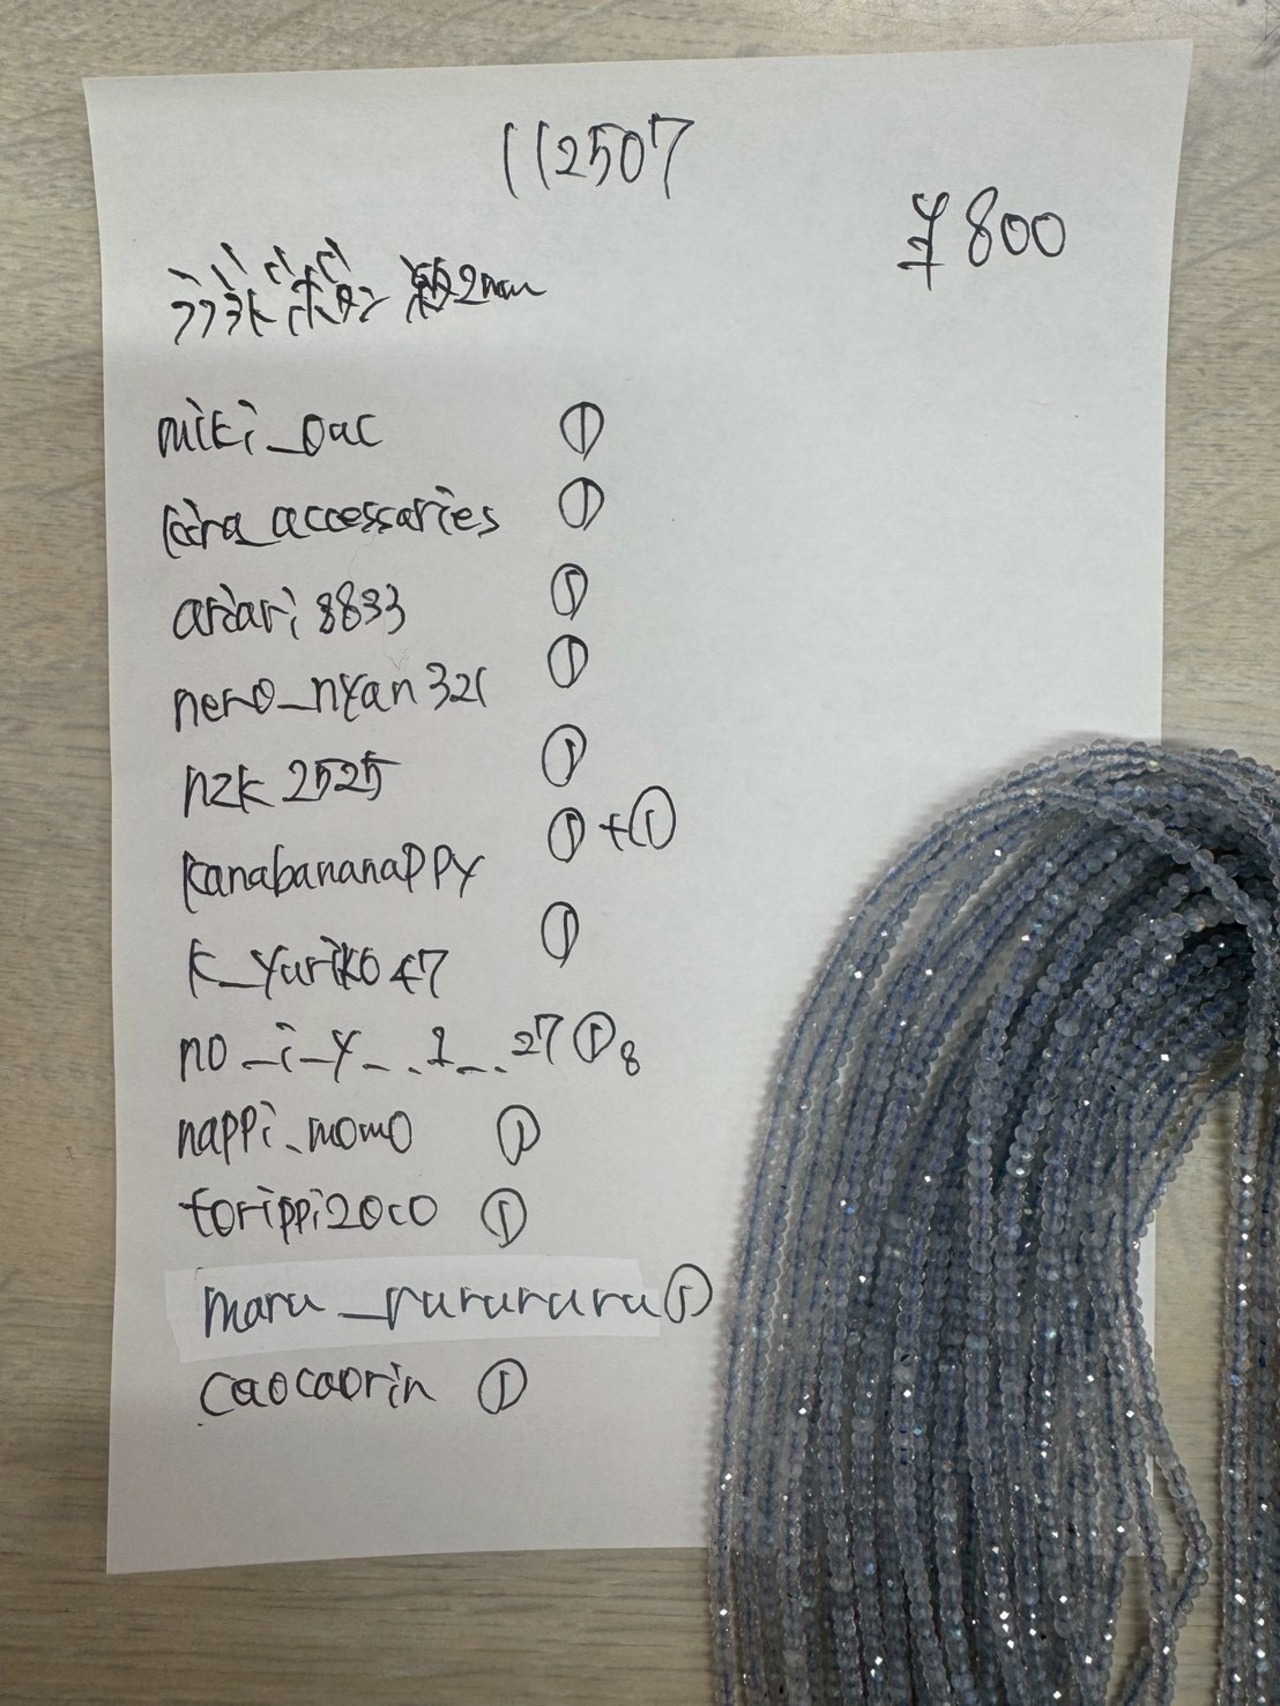 112507
¥800
ラブラド ボタン 級2mm
miki_oac
kira_accessaries
ariari8833
nero_nyan321
nzk2525
①
①
①
①
①
kanabananappy ①+①
k_yuriko47 ①
no_i_y_._1_._27 ①8
nappi_momo ①
torippi2oco ①
maru_rurururu ①
caocaorin ①